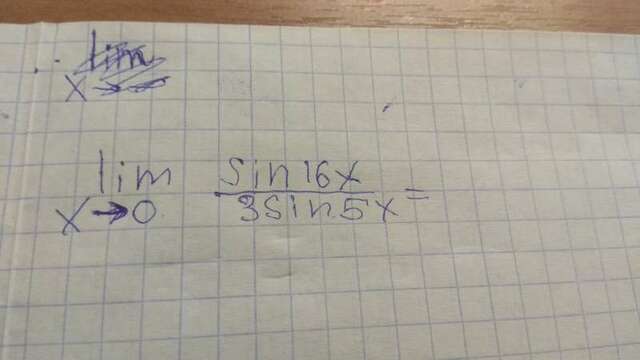 lim
x →
lim sin16x
x → 0 3sin5x =